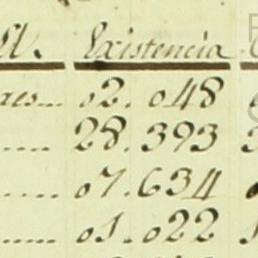 Existencia
res... 02.048
28.393
07.634
01.022